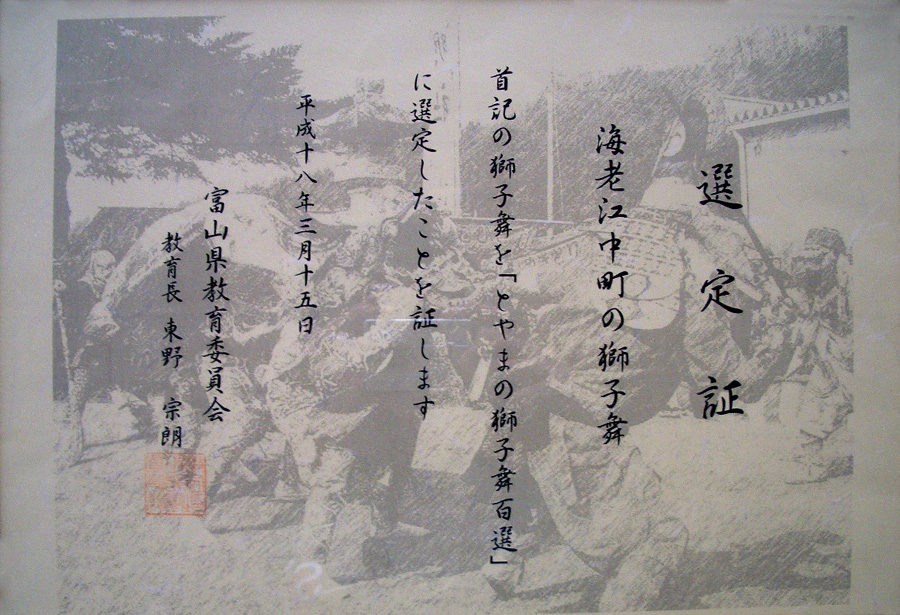 選定証
海老江中町の獅子舞
首記の獅子舞を「とやまの獅子舞百選」
に選定したことを証します
平成十八年三月十五日
富山県教育委員会
教育長 東野 宗朗